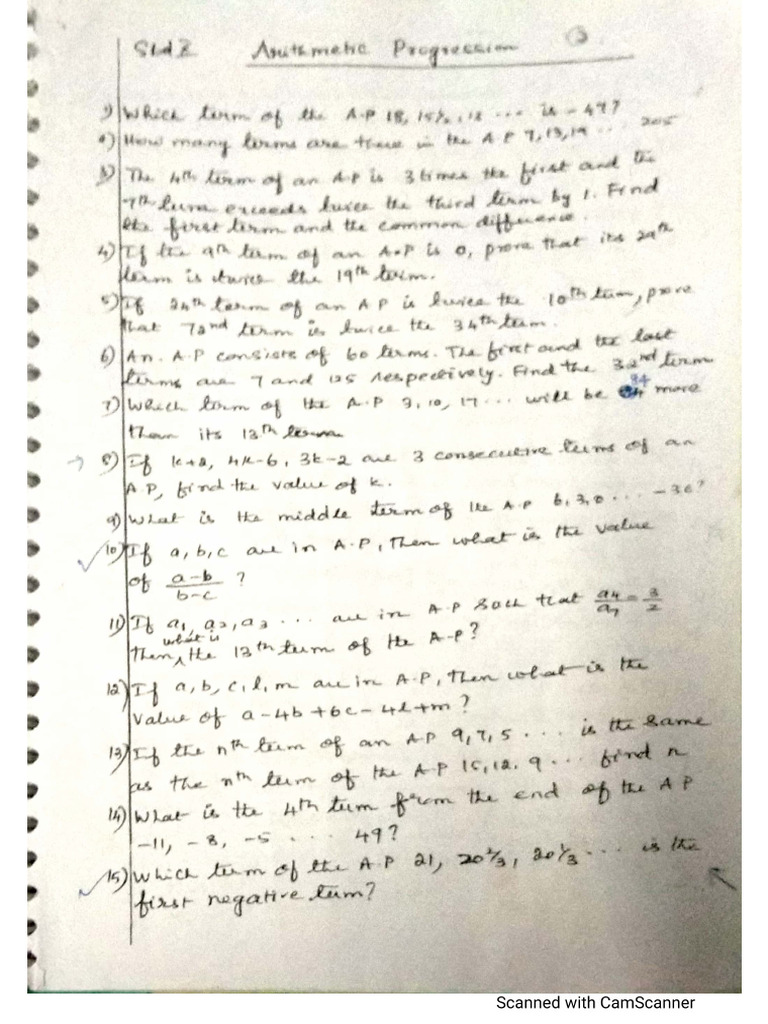 Std X Arithmetic Progression ③
1) Which term of the A.P 18, 15½, 13 ... is -47?
2) How many terms are there in the A.P 7, 13, 19 ... 205
3) The 4th term of an A.P is 3 times the first and the
7th term exceeds twice the third term by 1. Find
the first term and the common difference.
4) If the 9th term of an A.P is 0, prove that its 29th
term is twice the 19th term.
5) If 24th term of an AP is twice the 10th term, prove
that 72nd term is twice the 34th term.
6) An. A.P consists of 60 terms. The first and the last
terms are 7 and 125 respectively. Find the 32nd term
7) Which term of the A.P 3, 10, 17 ... will be 84 more
than its 13th term
→ 8) If k+2, 4k-6, 3k-2 are 3 consecutive terms of an
A P, find the value of k.
9) What is the middle term of the A.P 6, 3, 0 ... -36?
✓ 10) If a, b, c are in A.P, then what is the value
of a-b/b-c ?
11) If a1, a2, a3 ... are in A.P such that a4/a7 = 3/2
Then what is the 13th term of the A-P?
12) If a, b, c, l, m are in A.P, then what is the
value of a-4b+6c-4l+m?
13) If the nth term of an A.P 9, 7, 5 ... is the same
as the nth term of the A.P 15, 12, 9 ... find n
14) What is the 4th term from the end of the A P
-11, -8, -5 ... 49?
✓ 15) Which term of the A.P 21, 20⅔, 20⅓ ... is the
first negative term?
Scanned with CamScanner